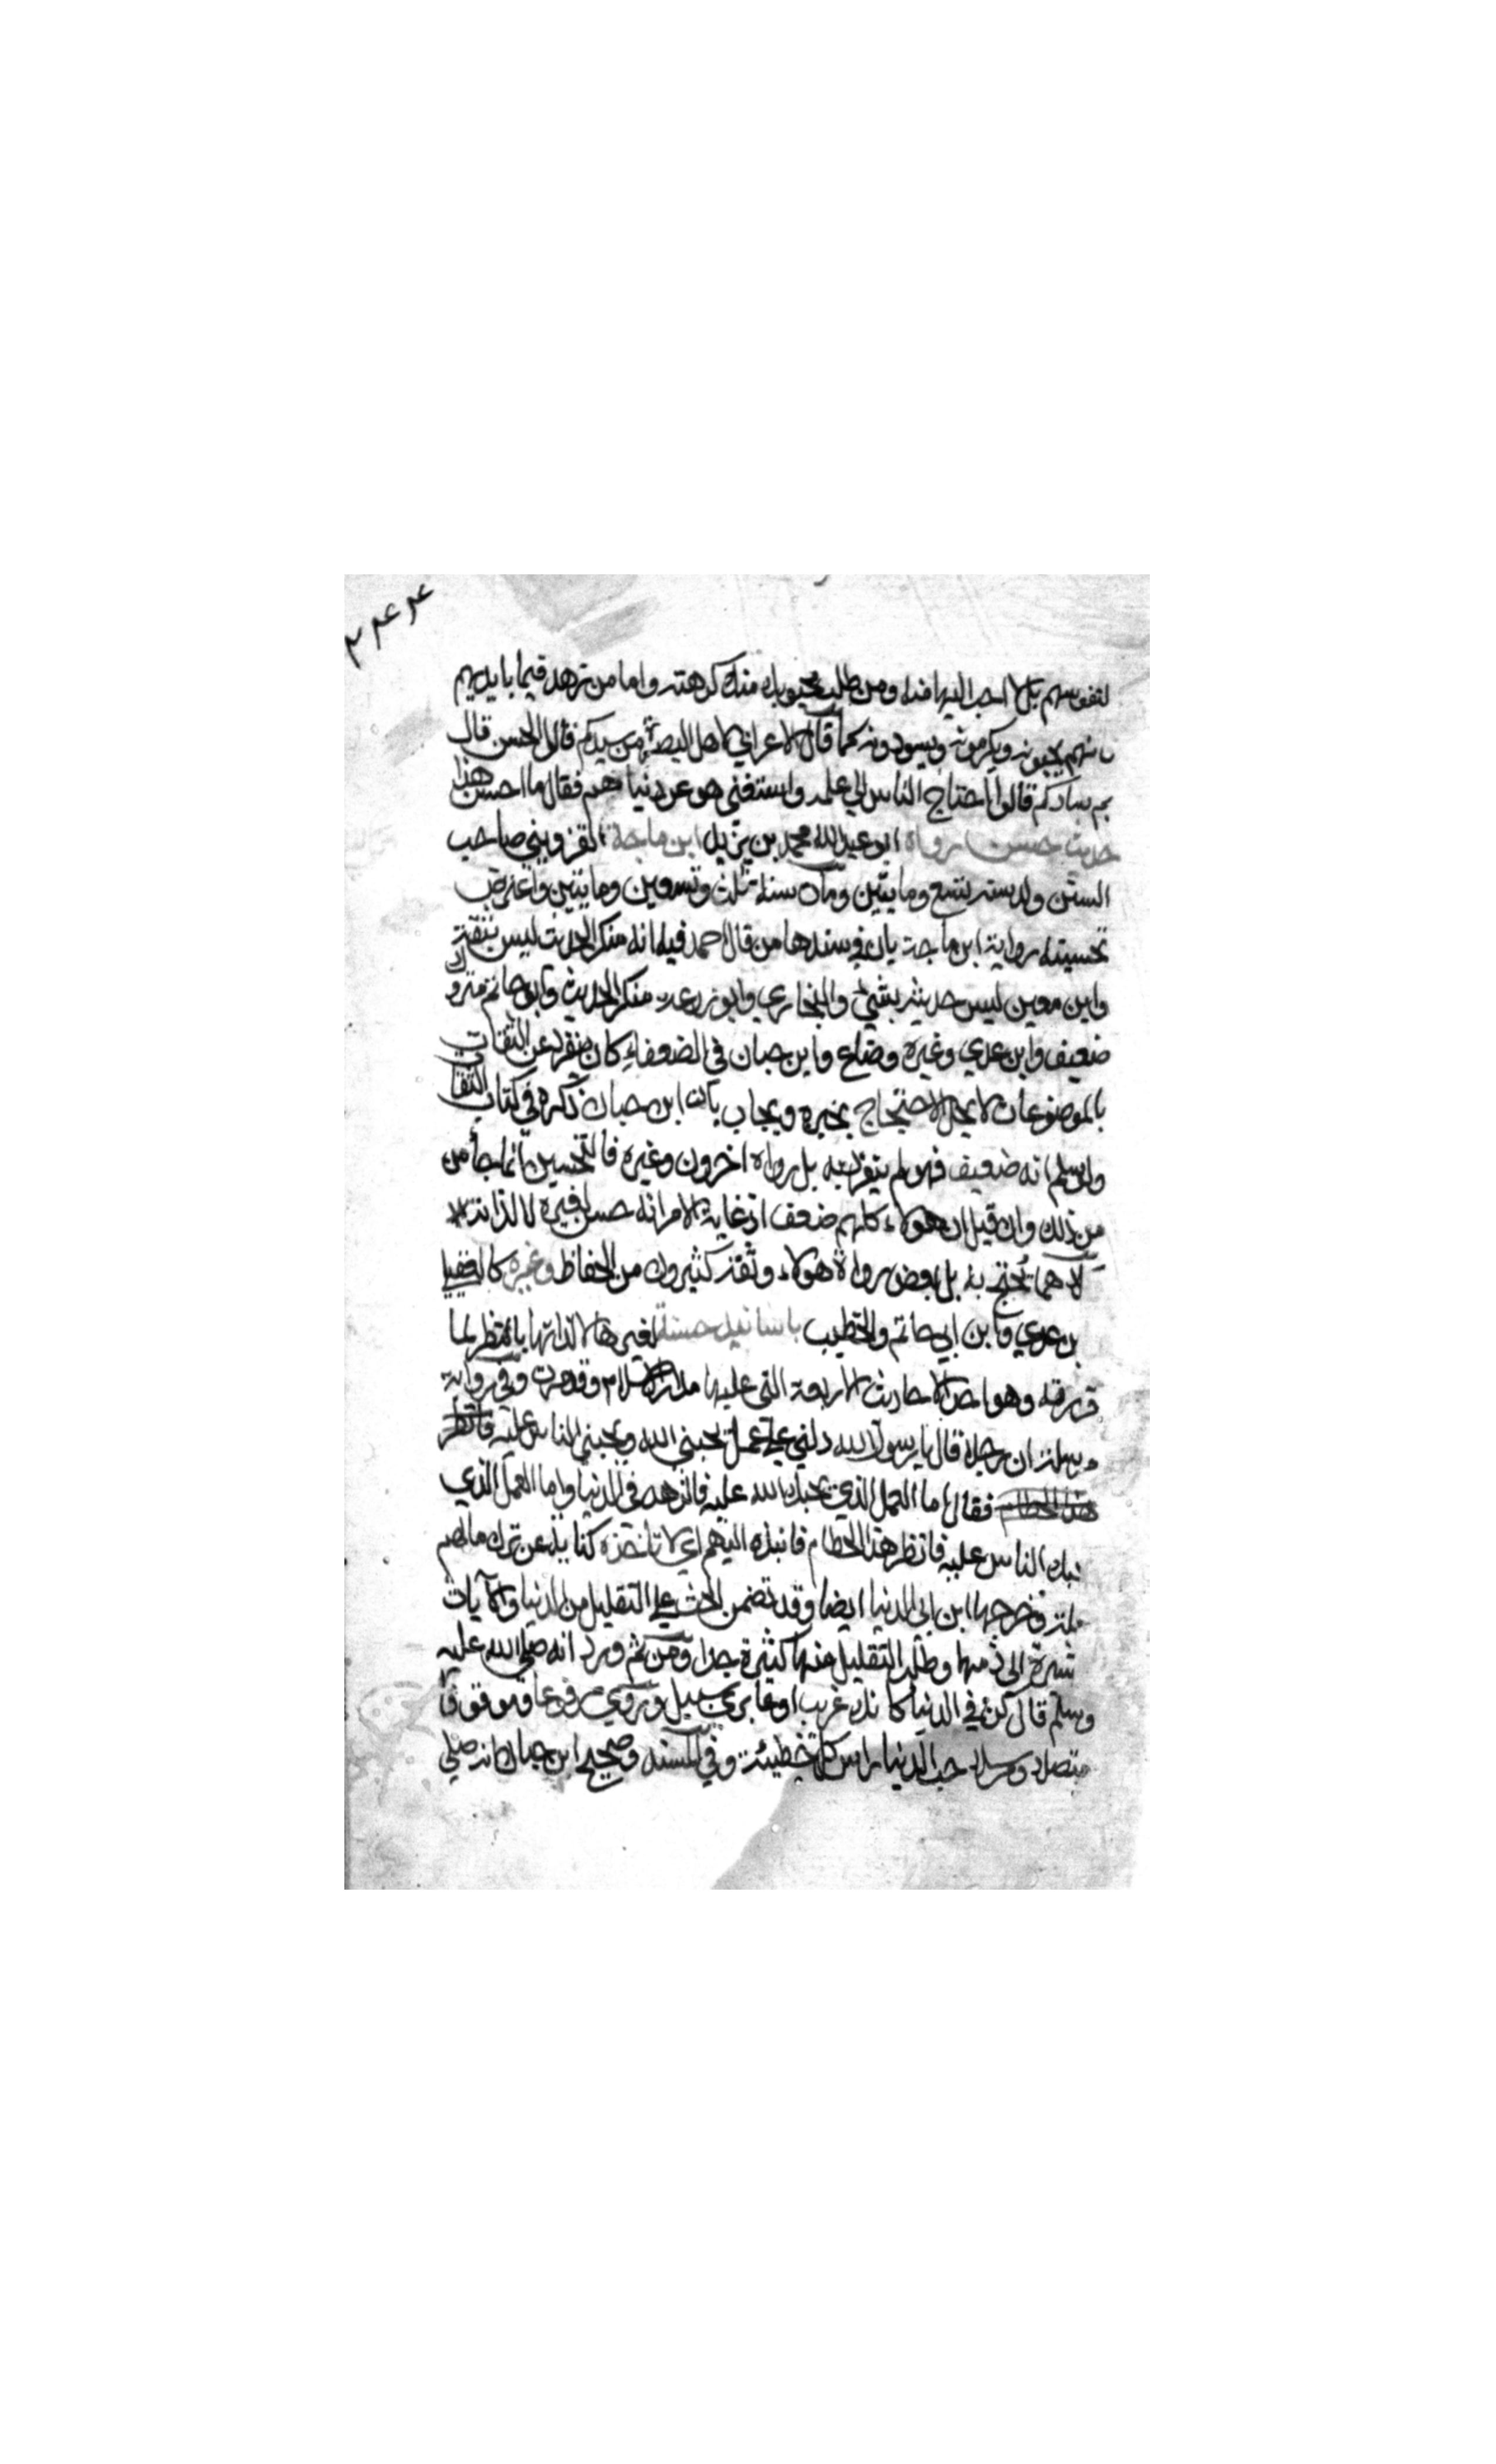 ٢٤٤
لنفوسهم بل لا احب اليها منه ومن طلب محبوبك منك كرهته واما من زهد فيما بايديهم
فانهم يحبونه ويكرمونه ويسودونه كما قال الاعرابي لاهل البصرة من سيدكم قالوا الحسن قال
بم سادكم قالوا احتاج الناس الي علمه واستغني هو عن دنياهم فقال ما احسن هذا
حديث حسن رواه ابو عبد الله محمد بن يزيد ابن ماجة القزويني صاحب
السنن ولد سنة تسع ومايتين ومات سنة ثلث وسبعين ومايتين واعترض
تحسينه رواية ابن ماجة بان في سندها من قال احمد فيه انه منكر الحديث ليس بثقة
وابن معين ليس حديثه بشئ والبخاري وابو زرعة منكر الحديث وابو حاتم متروك
ضعيف وابن عدي وغيره وضاع وابن حبان في الضعفاء كان ينفرد عن الثقات
بالموضوعات لا يحل الاحتجاج بخبره ويجاب بان ابن حبان ذكره في كتاب الثقات
ولو سلم انه ضعيف فهو لم ينفرد به بل رواه اخرون وغيره فالتحسين انما جأ من
من ذلك وان قيل ان هولاء كلهم ضعفا اذ غاية الامر انه حسن لغيره لا لذاته
كلاهما يحتج به بل بعض رواة هولاء وثقه كثيرون من الحفاظ وغيره كالعقيلي
بن عدي وابن ابي حاتم والخطيب باسانيد حسنة لغيرها لا لذاتها بالنظر لما
قررته وهو احد الاحاديث الاربعة التي عليها مدار الاسلام وقد مرت وفي رواية
مرسلة ان رجلا قال يا رسول الله دلني علي عمل يحبني الله ويحبني الناس عليه فانظر
هذا الحطام فقال اما العمل الذي يحبك الله عليه فازهد في الدنيا واما العمل الذي
يحبك الناس عليه فانظر هذا الحطام فانبذه اليهم اي لا تاخذه كناية عن ترك مالهم
وخرجها ابن ابي الدنيا ايضا وقد تضمن الحث علي التقليل من الدنيا والآيات
المشيرة الي ذمها وطلب التقليل منها كثيرة جدا ومن ثم ورد انه صلي الله عليه
وسلم قال كن في الدنيا كانك غريب او عابري سبيل وروي مرفوعا وموقوفا
متصلا ومرسلا حب الدنيا راس كل خطيئة وفي المسند وصحيح ابن حبان انه صلي